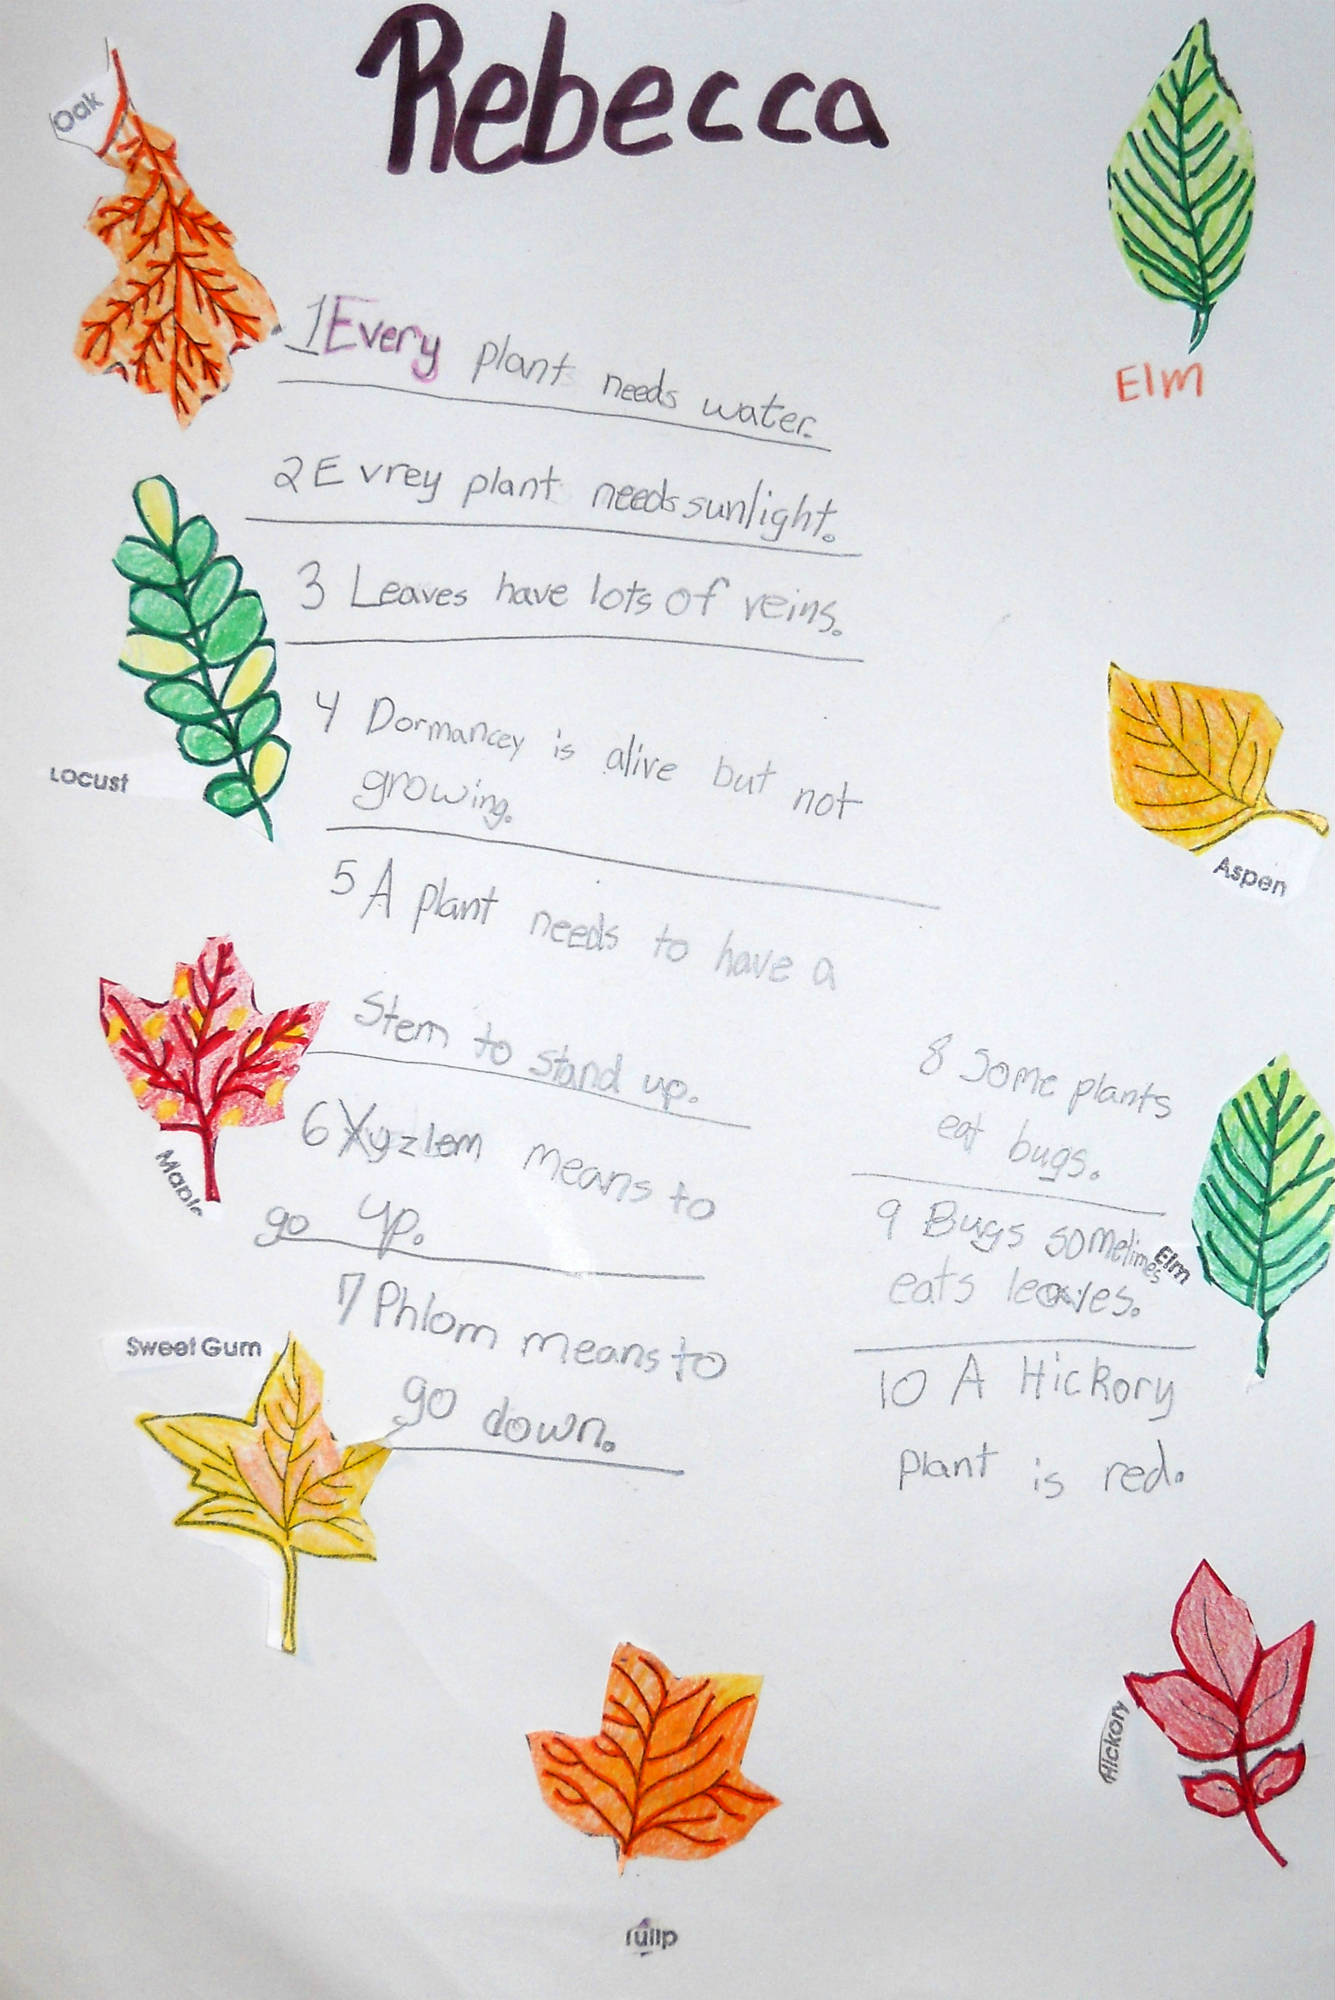 Rebecca
Oak
Elm
1 Every plant needs water.
2 Evrey plant needs sunlight.
3 Leaves have lots of veins.
4 Dormancey is alive but not
growing.
Locust
Aspen
5 A plant needs to have a
Stem to stand up.
Maple
6 Xyzlem means to
go up.
7 Phlom means to
go down.
Sweet Gum
8 Some plants
eat bugs.
9 Bugs sometimes
eats leaves.
Elm
10 A Hickory
plant is red.
Hickory
Tulip